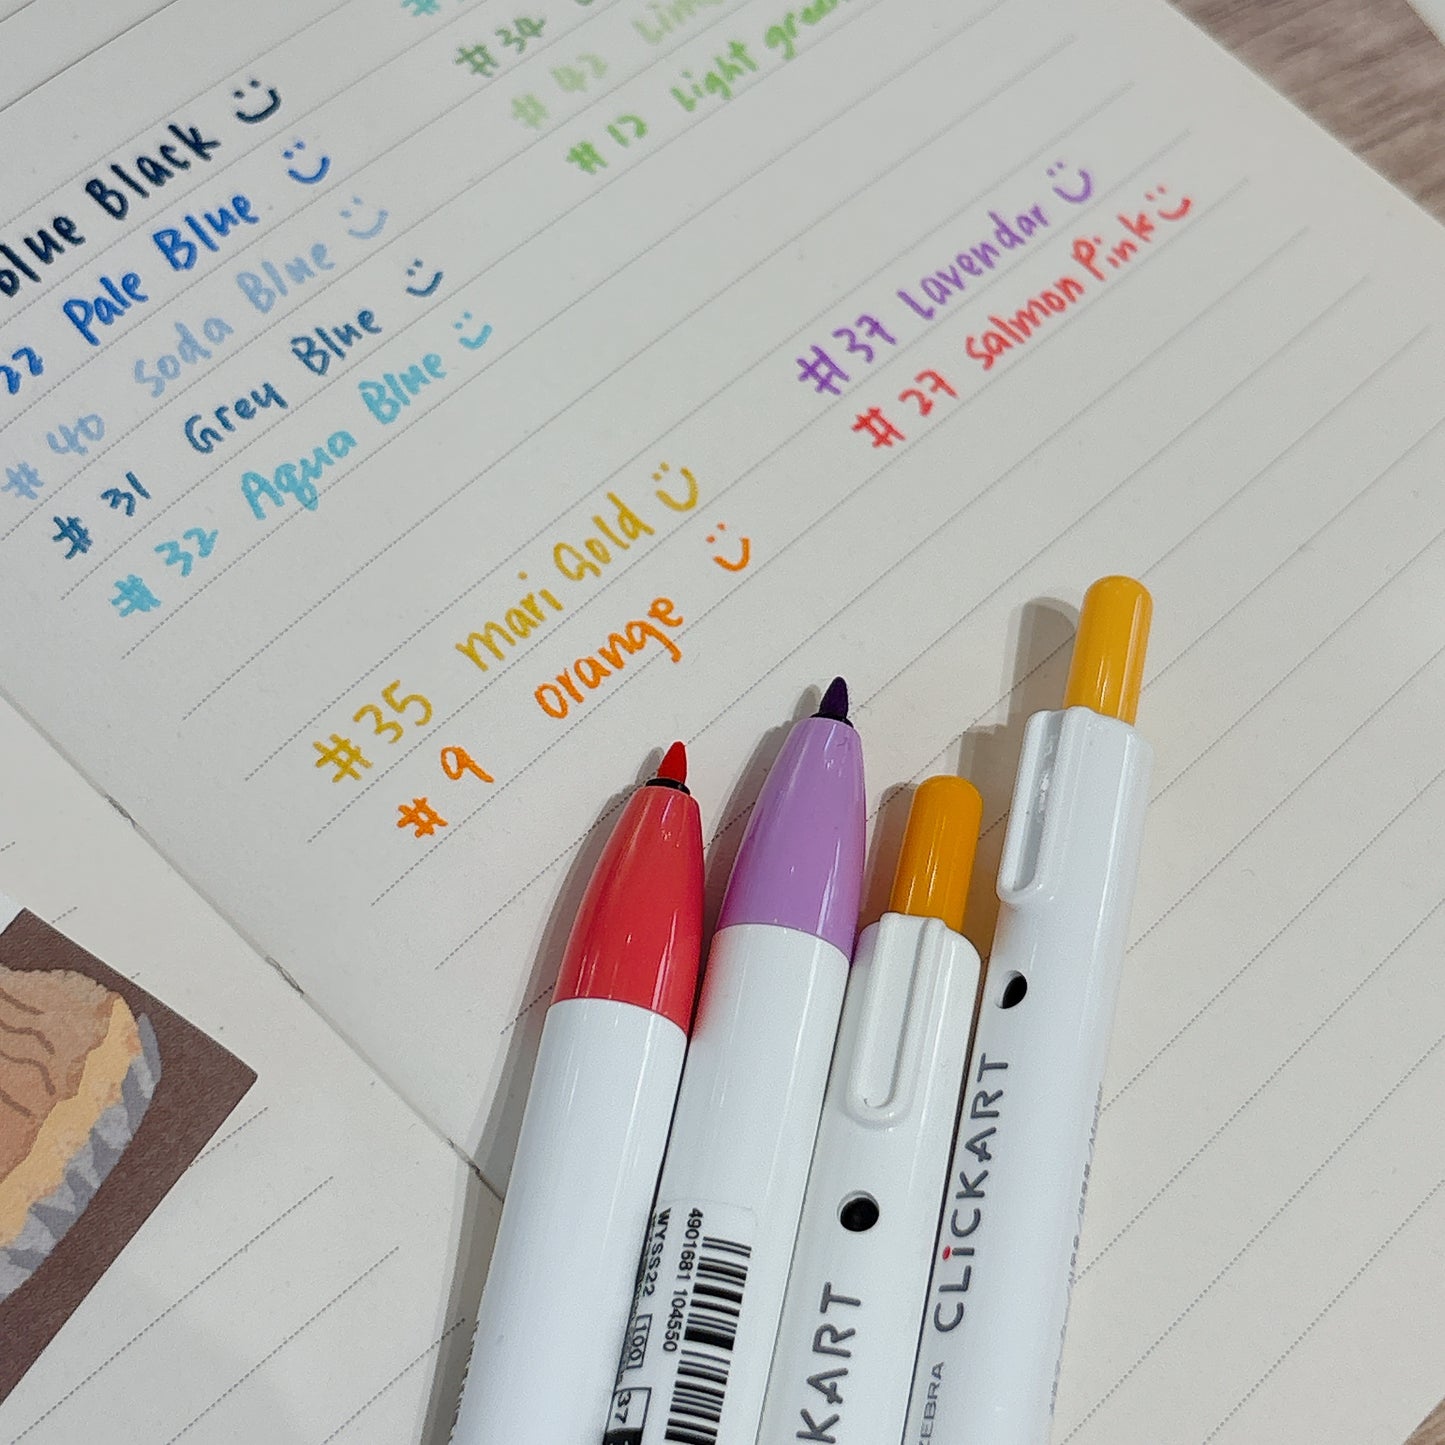 Blue Black
22 Pale Blue
# 40 Soda Blue
# 31 Grey Blue
# 32 Aqua Blue
# 34
# 42 Lime
# 12 Light green
# 37 Lavendar
# 27 Salmon Pink
#35 mari Gold
# 9 orange
WYSS22 [100] 37
4901681 104550
KART
ZEBRA CLiCKART